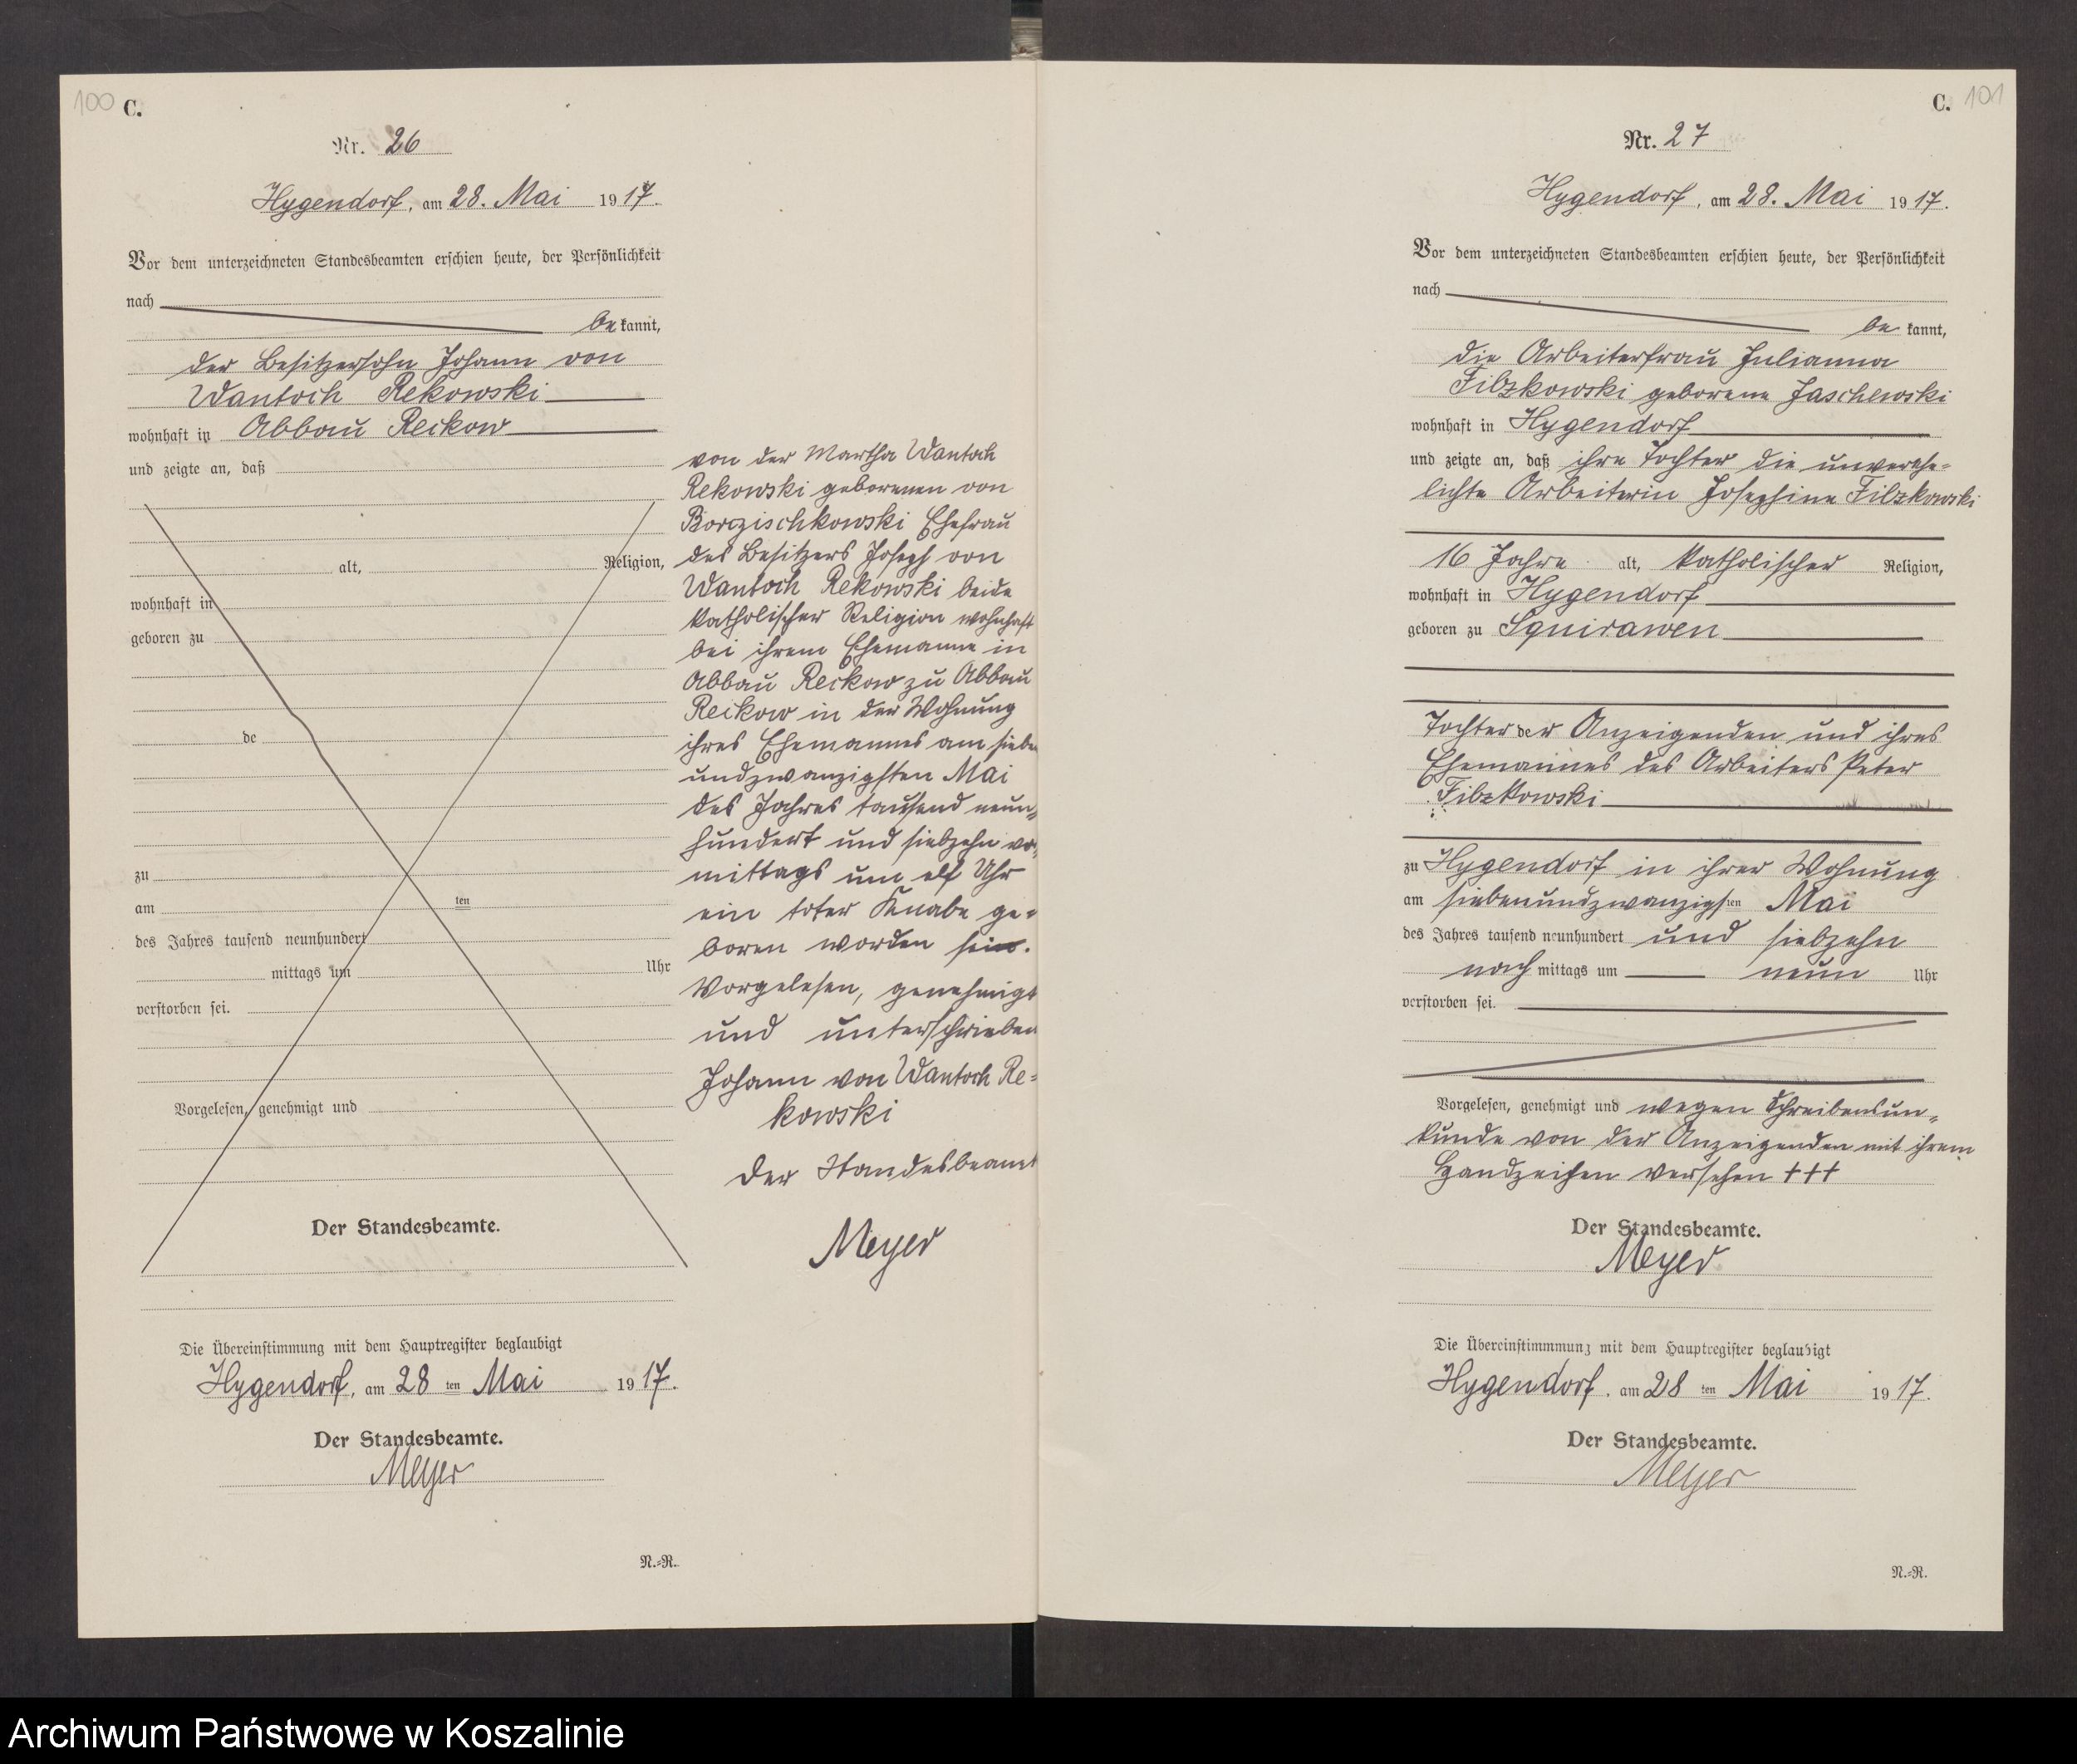 100 C.
Nr. 26
Hygendorf, am 28. Mai 1917.
Vor dem unterzeichneten Standesbeamten erschien heute, der Persönlichkeit
nach
be kannt,
der Besitzersohn Johann von
Wantoch Rekowski
wohnhaft in Abbau Reckow
und zeigte an, daß
alt, Religion,
wohnhaft in
geboren zu
de
zu
am ten
des Jahres tausend neunhundert
mittags um Uhr
verstorben sei.
Vorgelesen, genehmigt und
Der Standesbeamte.
von der Martha Wantoch
Rekowski geborenen von
Borczischkowski Ehefrau
des Besitzers Joseph von
Wantoch Rekowski beide
katholischer Religion wohnhaft
bei ihrem Ehemanne in
Abbau Reckow zu Abbau
Reckow in der Wohnung
ihres Ehemannes am sieben
undzwanzigsten Mai
des Jahres tausend neun=
hundert und siebzehn vor=
mittags um elf Uhr
ein toter Knabe ge=
boren worden sei.
Vorgelesen, genehmigt
und unterschrieben
Johann von Wantoch Re=
kowski
Der Standesbeamt
Meyer
Die Übereinstimmung mit dem Hauptregister beglaubigt
Hygendorf, am 28 ten Mai 1917.
Der Standesbeamte.
Meyer
N.=R.
C. 101
Nr. 27
Hygendorf, am 28. Mai 1917.
Vor dem unterzeichneten Standesbeamten erschien heute, der Persönlichkeit
nach
be kannt,
die Arbeiterfrau Julianna
Filzkowski geborene Jaschewski
wohnhaft in Hygendorf
und zeigte an, daß ihre Tochter die unverehe=
lichte Arbeiterin Josephine Filzkowski
16 Jahre alt, katholischer Religion,
wohnhaft in Hygendorf
geboren zu Squirawen
Tochter der Anzeigenden und ihres
Ehemannes des Arbeiters Peter
Filzkowski
zu Hygendorf in ihrer Wohnung
am siebenundzwanzigsten Mai
des Jahres tausend neunhundert und siebzehn
nach mittags um neun Uhr
verstorben sei.
Vorgelesen, genehmigt und wegen Schreibensun=
kunde von der Anzeigenden mit ihrem
Handzeichen versehen +++
Der Standesbeamte.
Meyer
Die Übereinstimmmung mit dem Hauptregister beglaubigt
Hygendorf, am 28 ten Mai 1917.
Der Standesbeamte.
Meyer
N.=R.
Archiwum Państwowe w Koszalinie